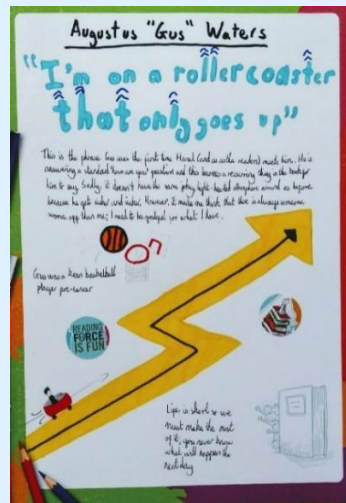 Augustus "Gus" Waters
"I'm on a rollercoaster
that only goes up"
This is the phrase Gus uses the first time Hazel (and as well as readers) meets him. He is
answering a standard 'how are you' question and this becomes a recurring thing
for him to say. Sadly, it doesn't have the same light-hearted
because he gets sicker and sicker. However, it makes me think that there is always someone
worse off than me; I need to be grateful for what I have.
Gus was a keen basketball
player pre-cancer
READING
FORCE
IS FUN
Life is short so we
must make the most
of it, you never know
what will happen the
next day